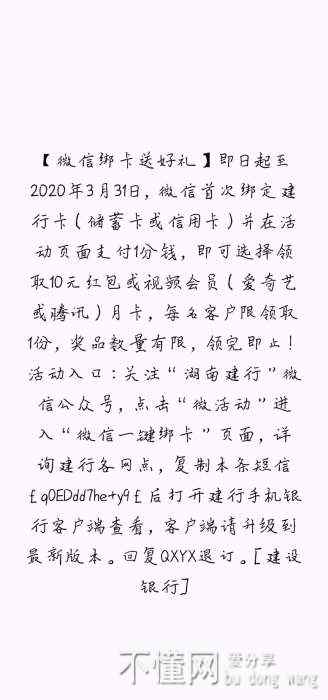 【微信绑卡送好礼】即日起至
2020年3月31日，微信首次绑定建
行卡（储蓄卡或信用卡）并在活
动页面支付1分钱，即可选择领
取10元红包或视频会员（爱奇艺
或腾讯）月卡，每名客户限领取
1份，奖品数量有限，领完即止！
活动入口：关注“湖南建行”微
信公众号，点击“微活动”进
入“微信一键绑卡”页面，详
询建行各网点，复制本条短信
￡q0EDdd7he+y9￡后打开建行手机银
行客户端查看，客户端请升级到
最新版本。回复QXYX退订。[建设
银行]
不懂网 爱分享
bu dong wang